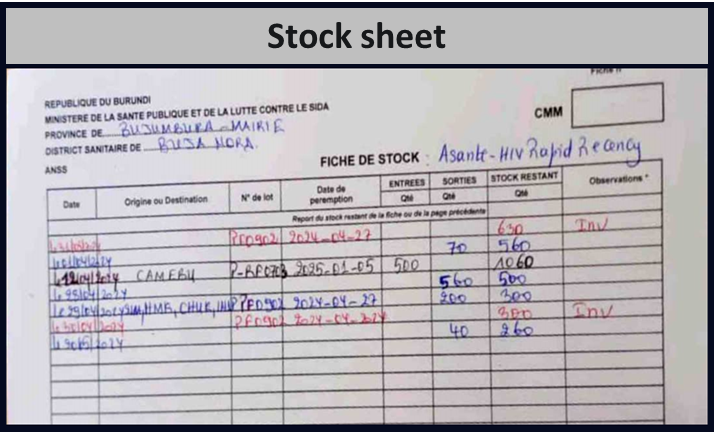 Stock sheet
Fiche n°
REPUBLIQUE DU BURUNDI
MINISTERE DE LA SANTE PUBLIQUE ET DE LA LUTTE CONTRE LE SIDA
PROVINCE DE BUJUMBURA-MAIRIE
CMM
DISTRICT SANITAIRE DE BUJA NORD
ANSS
FICHE DE STOCK : Asante-HIV Rapid Recency
Date Origine ou Destination N° de lot Date de peremption ENTREES Qté SORTIES Qté STOCK RESTANT Qté Observations *
Report du stock restant de la fiche ou de la page précédente
PF0902 2024-04-27 630 Inv
70 560
12/04/2024 CAMEBU 2025-01-05 500 1060
25/04/2024 560 500
HMK, CHUK, PF0902 2024-04-27 200 300
30/04/2024 PF0902 2024-04-2024 300 Inv
40 260